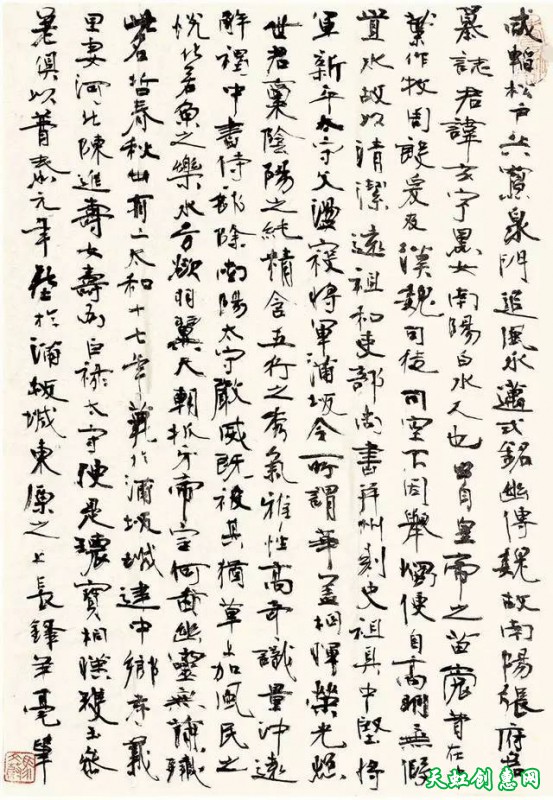 咸韜松戶共寢泉門追風永邁式銘幽傳魏故南陽張府君
墓誌君諱玄字黑女南陽白水人也出自皇帝之苗裔昔在中
葉作牧周殷爰及漢魏司徒司空不因舉燭便自高明無假
置水故以清潔遠祖和吏部尚書并州刺史祖具中堅將
軍新平太守父盪寇將軍蒲坂令所謂華蓋相暉榮光照
世君稟陰陽之純精含五行之秀氣雅性高奇識量沖遠
解褐中書侍郎除南陽太守嚴威既被其猶草上加風民之
悅化若魚之樂水方欲羽翼天朝抓牙帝室何啚幽靈無簡殲
此名哲春秋卅有二太和十七年薨於蒲坂城建中鄉孝義
里妻河北陳進壽女壽為巨祿太守便是瓌寶相暎瓊玉參
差俱以普泰元年葬於蒲坂城東原之上長鋒羊毫筆
天虹创意网